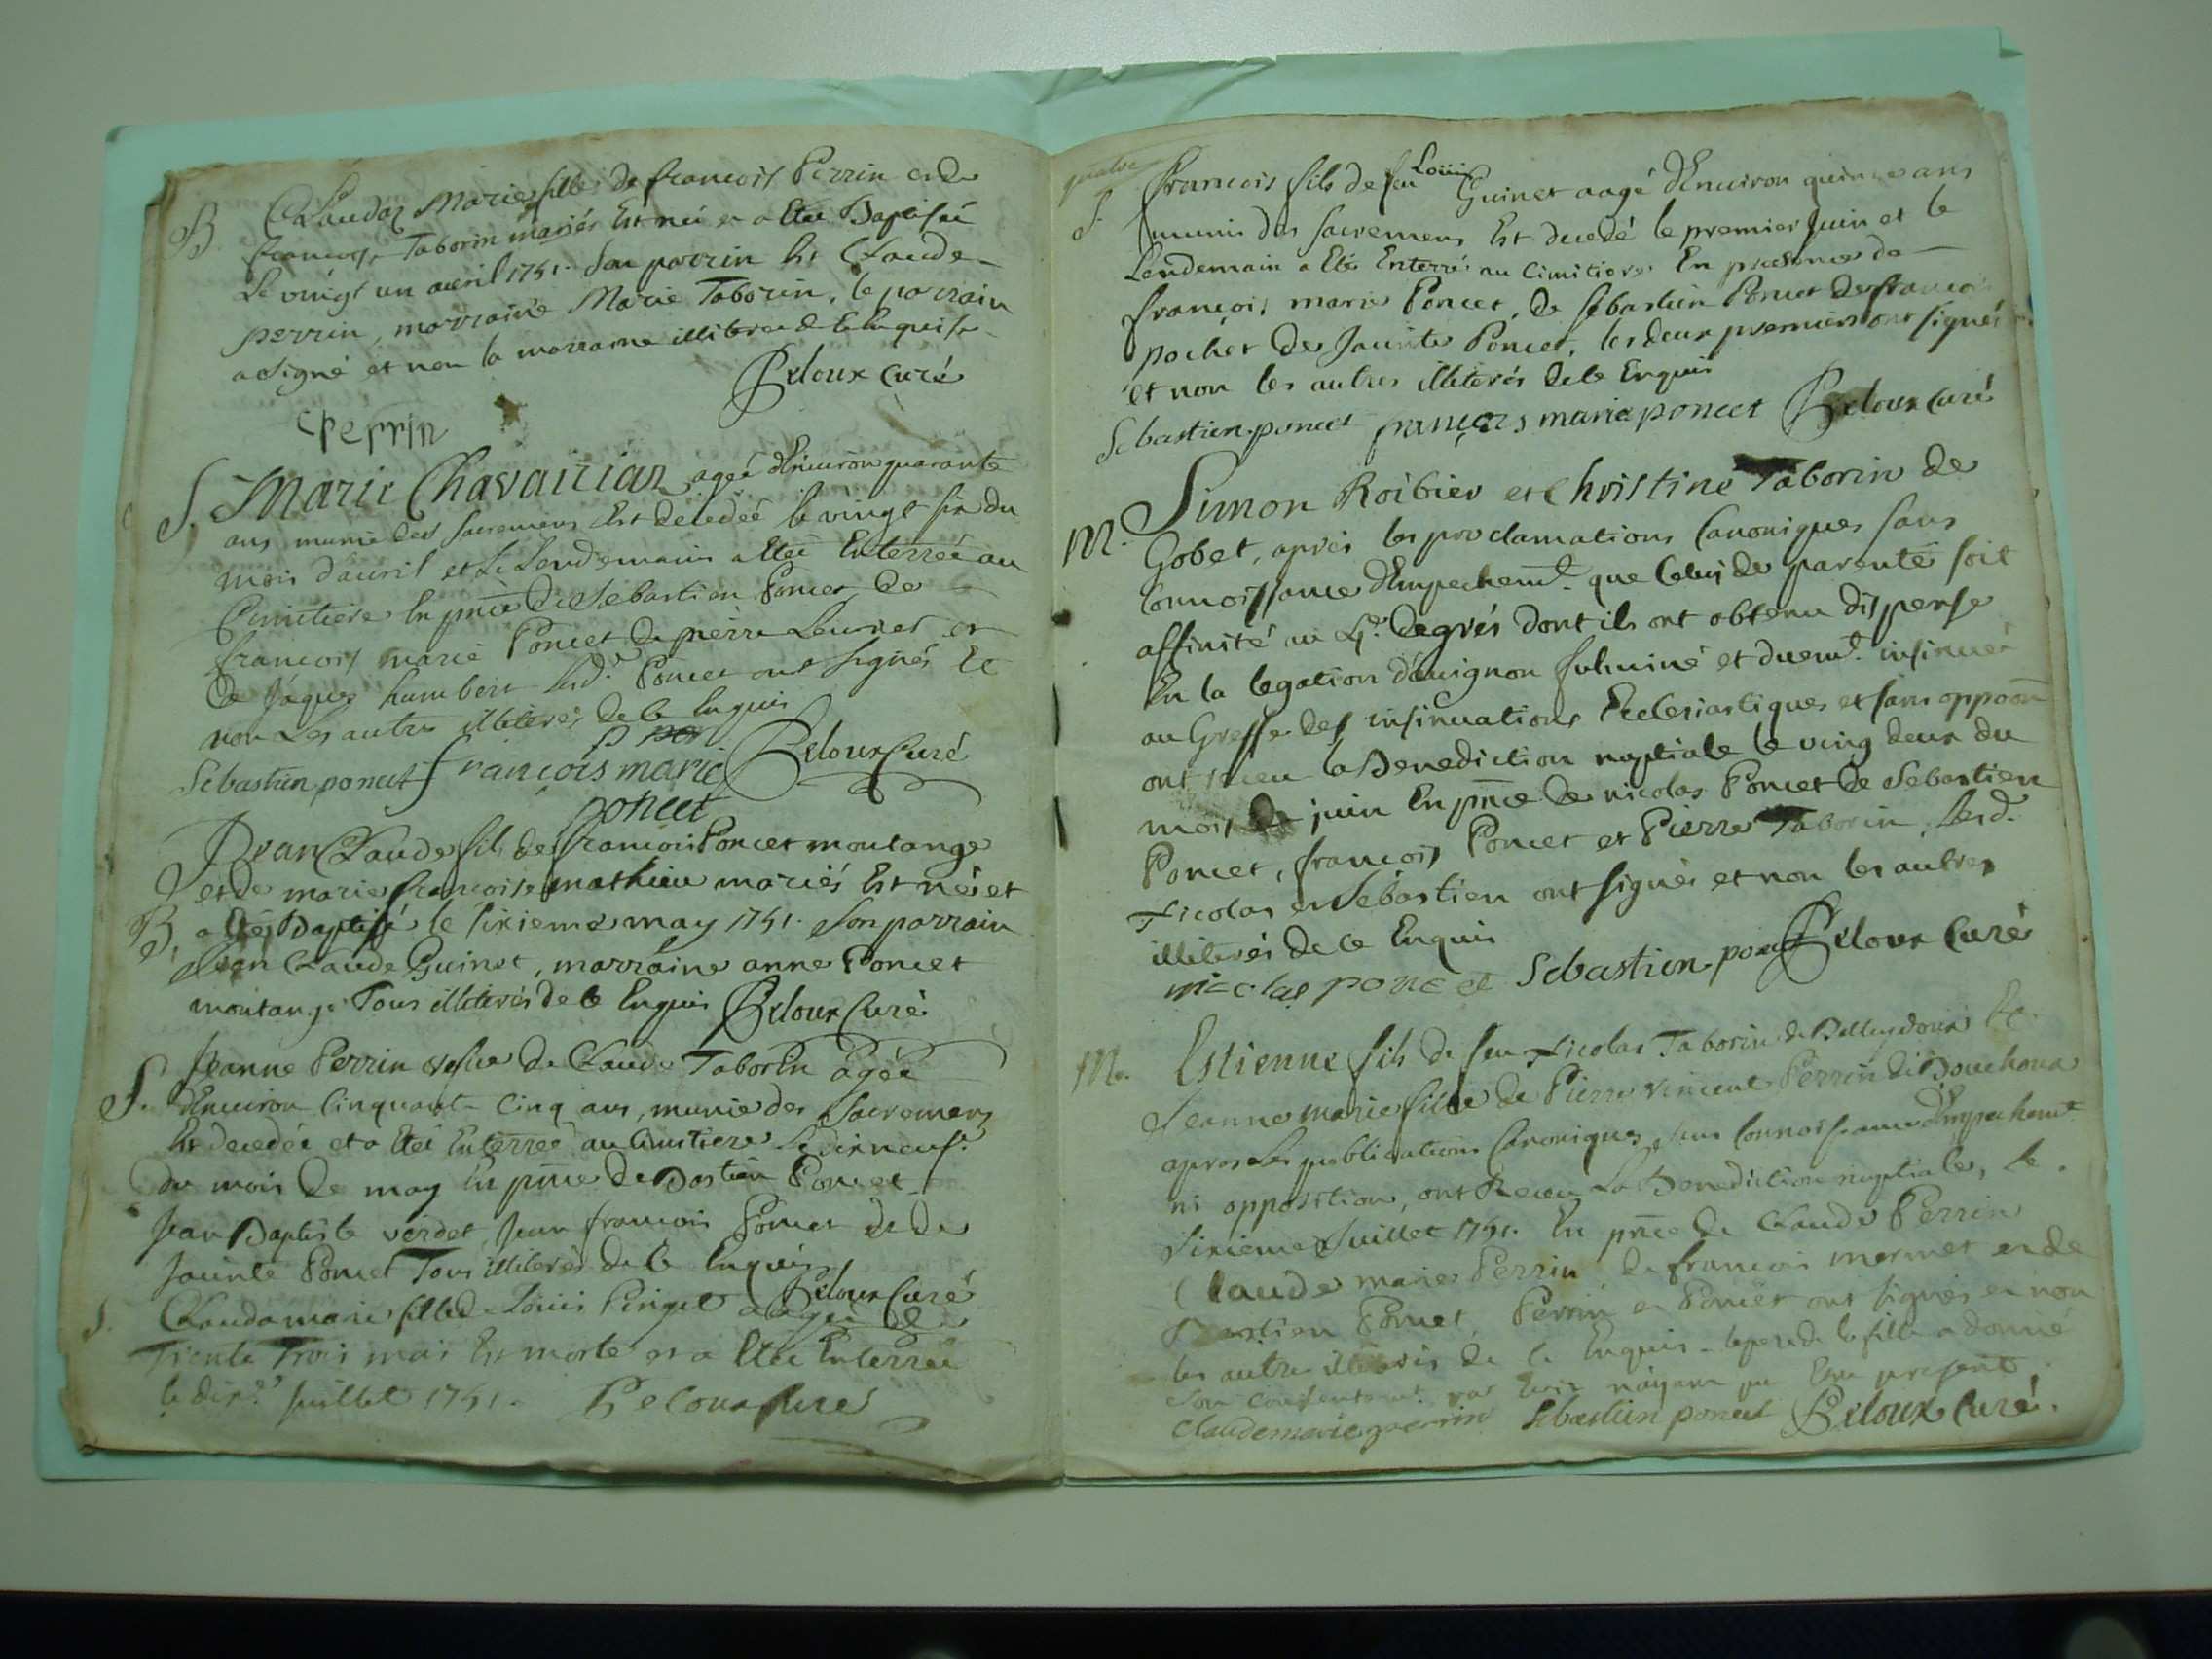 B. Claudaz Marie fille de francois Perrin et de
francoise Taborin mariés Est née et a Eté Baptisée
Le vingt un avril 1751. Son parrin Est Claude
perrin, marraine Marie Taborin, le parrain
a signé et non la marraine illiterée de ce Enquise
Beloux Curé
C perrin
S. Marie Chavairiaz agée d'Environ quarante
ans munie des sacremens Est decedée le vingt six du
mois d'avril et Le Lendemain a Eté Enterrée au
Cimitiere En pnce De Sebastien Poncet, de
francois marie Poncet de pierre et
de Jaques humbert lesd. Poncet ont signés et
non Les autres illiterés de ce Enquis
Sebastien poncet francois marie Beloux Curé
poncet
Jean Claude fils de francois Poncet montange
et de marie francoise mathieu mariés Est né et
B. a Eté Baptisé le sixieme may 1751. Son parrain
Jean Claude Guinet, marraine anne Poncet
montange Tous illiterés de ce Enquis Beloux Curé
Jeanne Perrin vefve de Claude Taborin agée
S. d'Environ Cinquante Cinq ans, munie des Sacremens
Est decedée et a Eté Enterrée au Cimitiere Le dix neuf
du mois de may En pnce de Bastien Poncet
Jean Baptiste verdet, Jean francois Poncet et de
Jacinte Poncet Tous illiterés de ce Enquis
Beloux Curé
S. Claudamarie fille de Loüis Pinget agée de
Trente Trois mois Est morte et a Eté Enterrée
le Juillet 1751. Beloux Curé
quatre
S. francois fils de feu Loüis Guinet aagé d'Environ quinze ans
muni des sacremens Est decedé le premier Juin et le
Lendemain a Eté Enterré au Cimitiere En presence de
francois marie Poncet, de sebastien Poncet de francois
pochet de Jacinte Poncet, les deux premiers ont signés
et non les autres illiterés de ce Enquis
Sebastien poncet françois marie poncet Beloux Curé
M. Simon Roibier et Christine Taborin de
Gobet, après les proclamations Canoniques sans
Connoissance d'Empechemt. que Celuy de parenté soit
affinité au 4e. degrés dont ils ont obtenu dispense
En la legation d'avignon fulminé et duemt. insinuér
au Greffe des insinuations Ecclesiastiques et sans oppoon
ont receu la Benediction nuptiale le ving deux du
mois de juin En pnce de nicolas Poncet de Sebastien
Poncet, francois Poncet et Pierre Taborin, Lesd.
Nicolas et Sébastien ont signés et non les autres
illiterés de ce Enquis
nicolas poncet Sebastien poncet Beloux Curé
M. Estienne fils de feu Nicolas Taborin de et
Jeanne marie fille de Pierre vincent Perrin de
apres Les publications Canoniques, sans Connoissance d'Empechemt.
ni opposition, ont Receu La Benediction nuptiale, le
Sixieme Juillet 1751. En pnce de Claude Perrin
Claude marie Perrin, de francois mermet et de
Bastien Poncet, Perrin et Poncet ont signés et non
les autre illiterés de ce Enquis. le pere de la fille a donné
son consentemt. n'ayant pu Etre present
Claude marie perrin Sebastien poncet Beloux Curé.